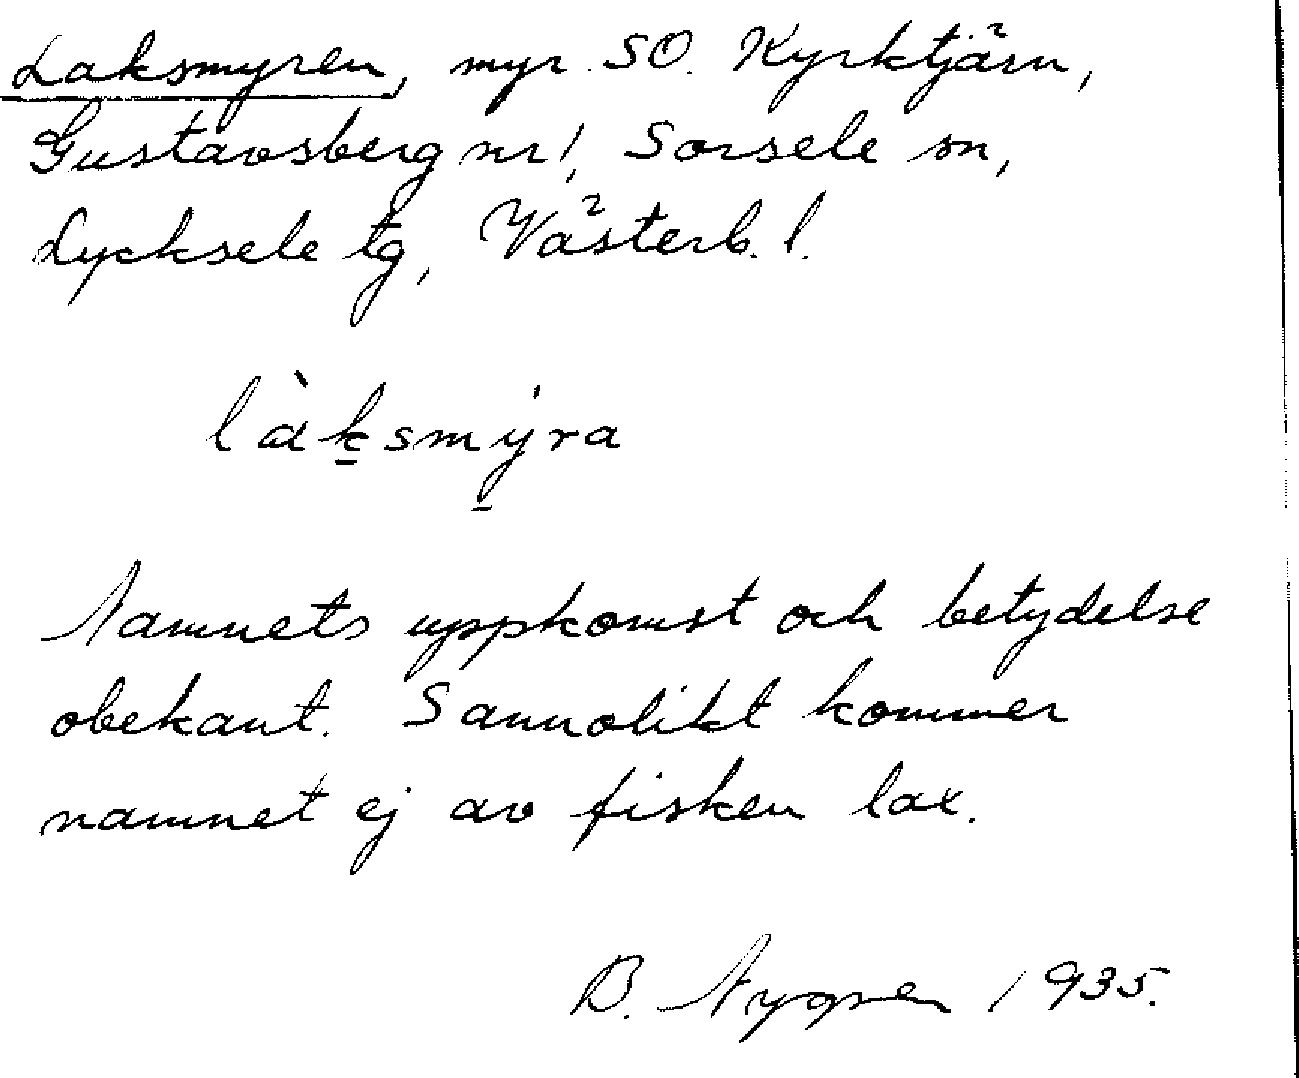 Laksmyren, myr. SO. Kyrktjärn,
Gustavsberg nr 1, Sorsele sn,
Lycksele tg, Västerb. l.
làk̲smý̲ra
Namnets uppkomst och betydelse
obekant. Sannolikt kommer
namnet ej av fisken lax.
B. Nygren 1935.